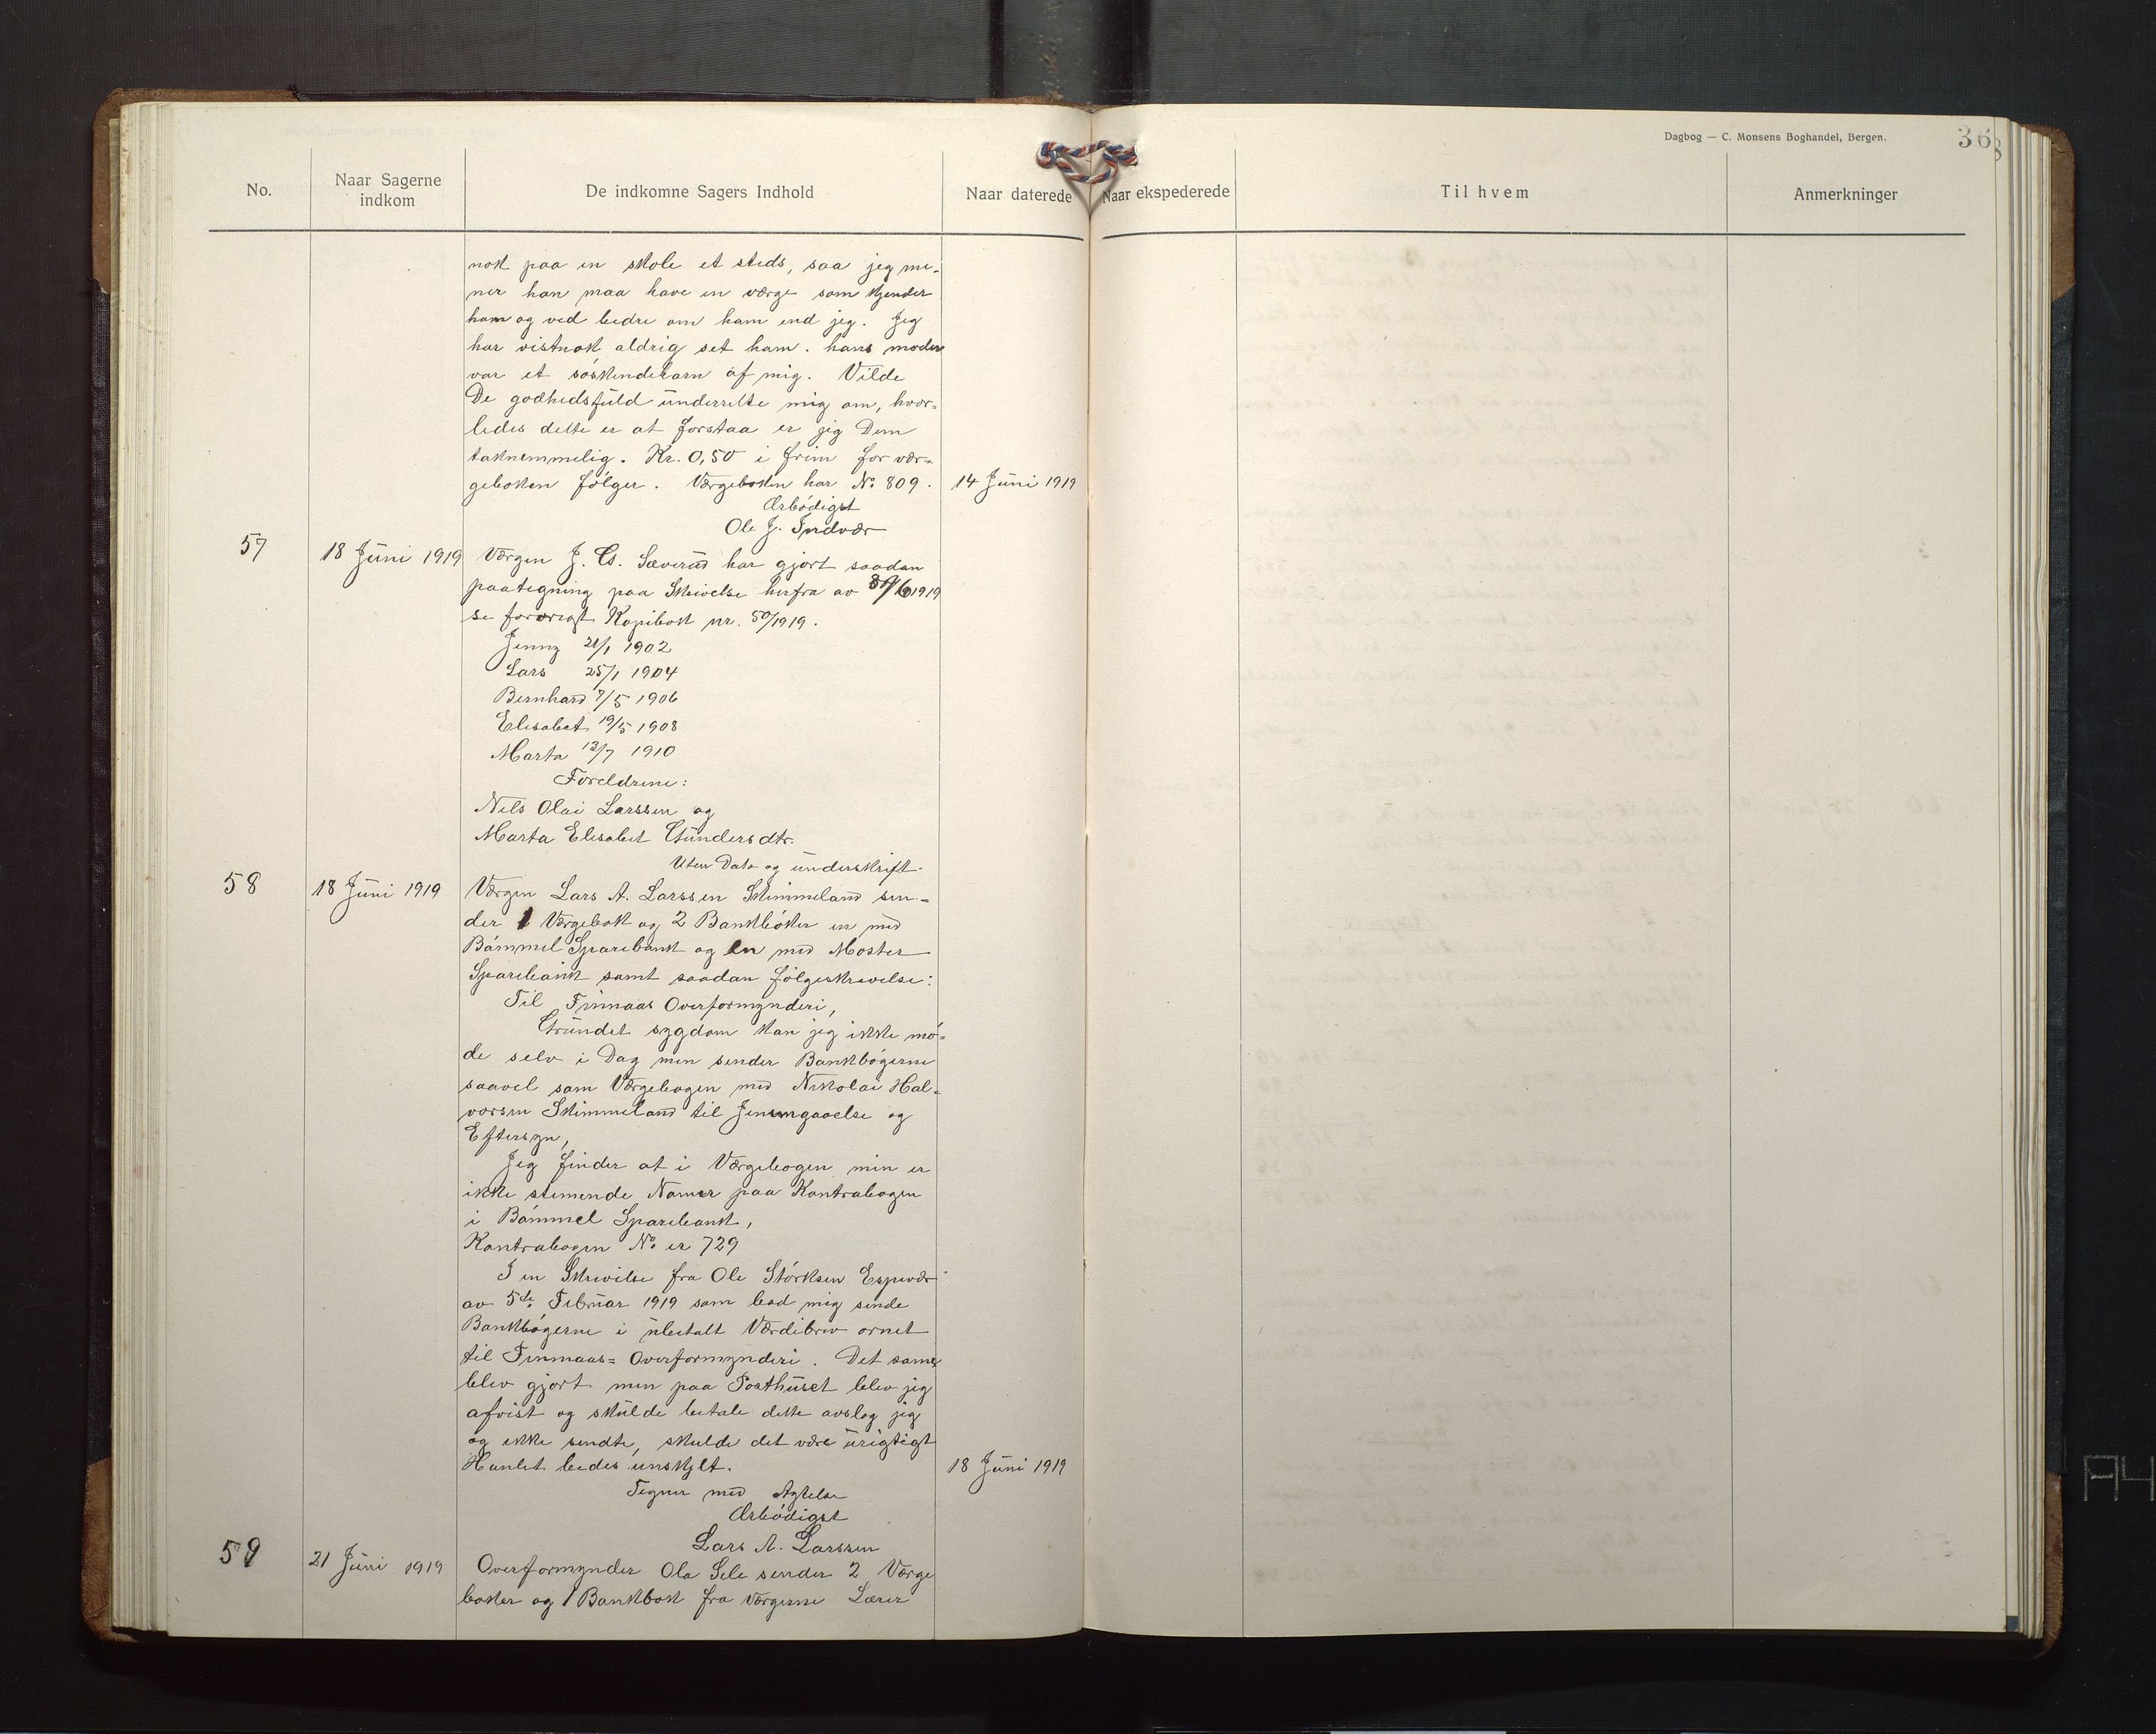 Dagbog — C. Monsens Boghandel, Bergen.
368
No.
Naar Sagerne indkom
De indkomne Sagers Indhold
Naar daterede
Naar ekspederede
Til hvem
Anmerkninger
nok paa en skole et steds, saa jeg me-
ner han maa have en værge som kjender
ham og ved bedre om ham end jeg. Jeg
har vistnok aldrig set ham. hans moder
var et söskendebarn af mig. Vilde
De godhedsfuld underrette mig om, hvor-
ledes dette er at forstaa er jeg Dem
taknemmelig. Kr. 0,50 i frim for vær-
geboken fölger. Værgeboken har No 809. 14 Juni 1919
Ærbödigst
Ole J. Indvær
57 18 Juni 1919 Værgen J. G. Sæverud har gjort saadan
paategning paa Skrivelse herfra av 1919
se forövrigt Kopibok nr. 50/1919.
Jenny 21/1 1902
Lars 25/1 1904
Bernhard 7/5 1906
Elisabet 19/5 1908
Marta 13/7 1910
Foreldrene:
Nels Olai Larssen og
Marta Elisabet Gundersdtr.
Uten Dato og underskrift.
58 18 Juni 1919 Værgen Lars A. Larssen Skimmeland sen-
der 1 Værgebok og 2 Bankböker en med
Bömmel Sparebank og en med Moster
Sparebank samt saadan fölgeskrivelse:
Til Finnaas Overformynderi,
Grundet sygdom kan jeg ikke mö-
de selv i Dag men sender Bankbögerne
saavel som Værgebogen med Nikolai Hal-
vorsen Skimmeland til Jennemgaaelse og
Eftersyn,
Jeg finder at i Værgebogen min er
ikke stemende Namer paa Kontrabogen
i Bömmel Sparebank,
Kontrabogen No er 729
I en Skrivelse fra Ole Störksen Espevær
av 5te Februar 1919 som bad mig sende
Bankbögerne i ubetalt Værdibrev ornet
til Finnaas= Overformynderi. Det same
blev gjort men paa Posthuset blev jeg
afvist og skulde betale dette avslog jeg
og ikke sendte, skulde det være urigtigt
Hanlet bedes unskylt. 18 Juni 1919
Tegner med Agtelse
Ærbödigst
Lars A. Larssen
59 21 Juni 1919 Overformynder Ola Sele sender 2 Værge
boker og 1 Bankbok fra værgerne Lærer